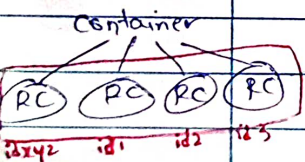 Container
RC RC RC RC
idxyz id1 id2 id3